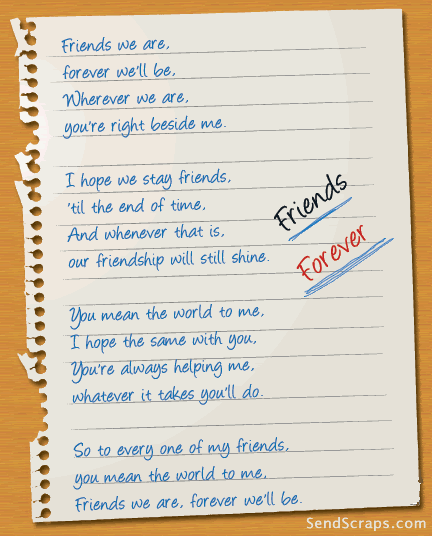 Friends we are,
forever we'll be,
Wherever we are,
you're right beside me.
I hope we stay friends,
'til the end of time,
And whenever that is,
our friendship will still shine.
Friends
Forever
You mean the world to me,
I hope the same with you,
You're always helping me,
whatever it takes you'll do.
So to every one of my friends,
you mean the world to me,
Friends we are, forever we'll be.
SendScraps.com